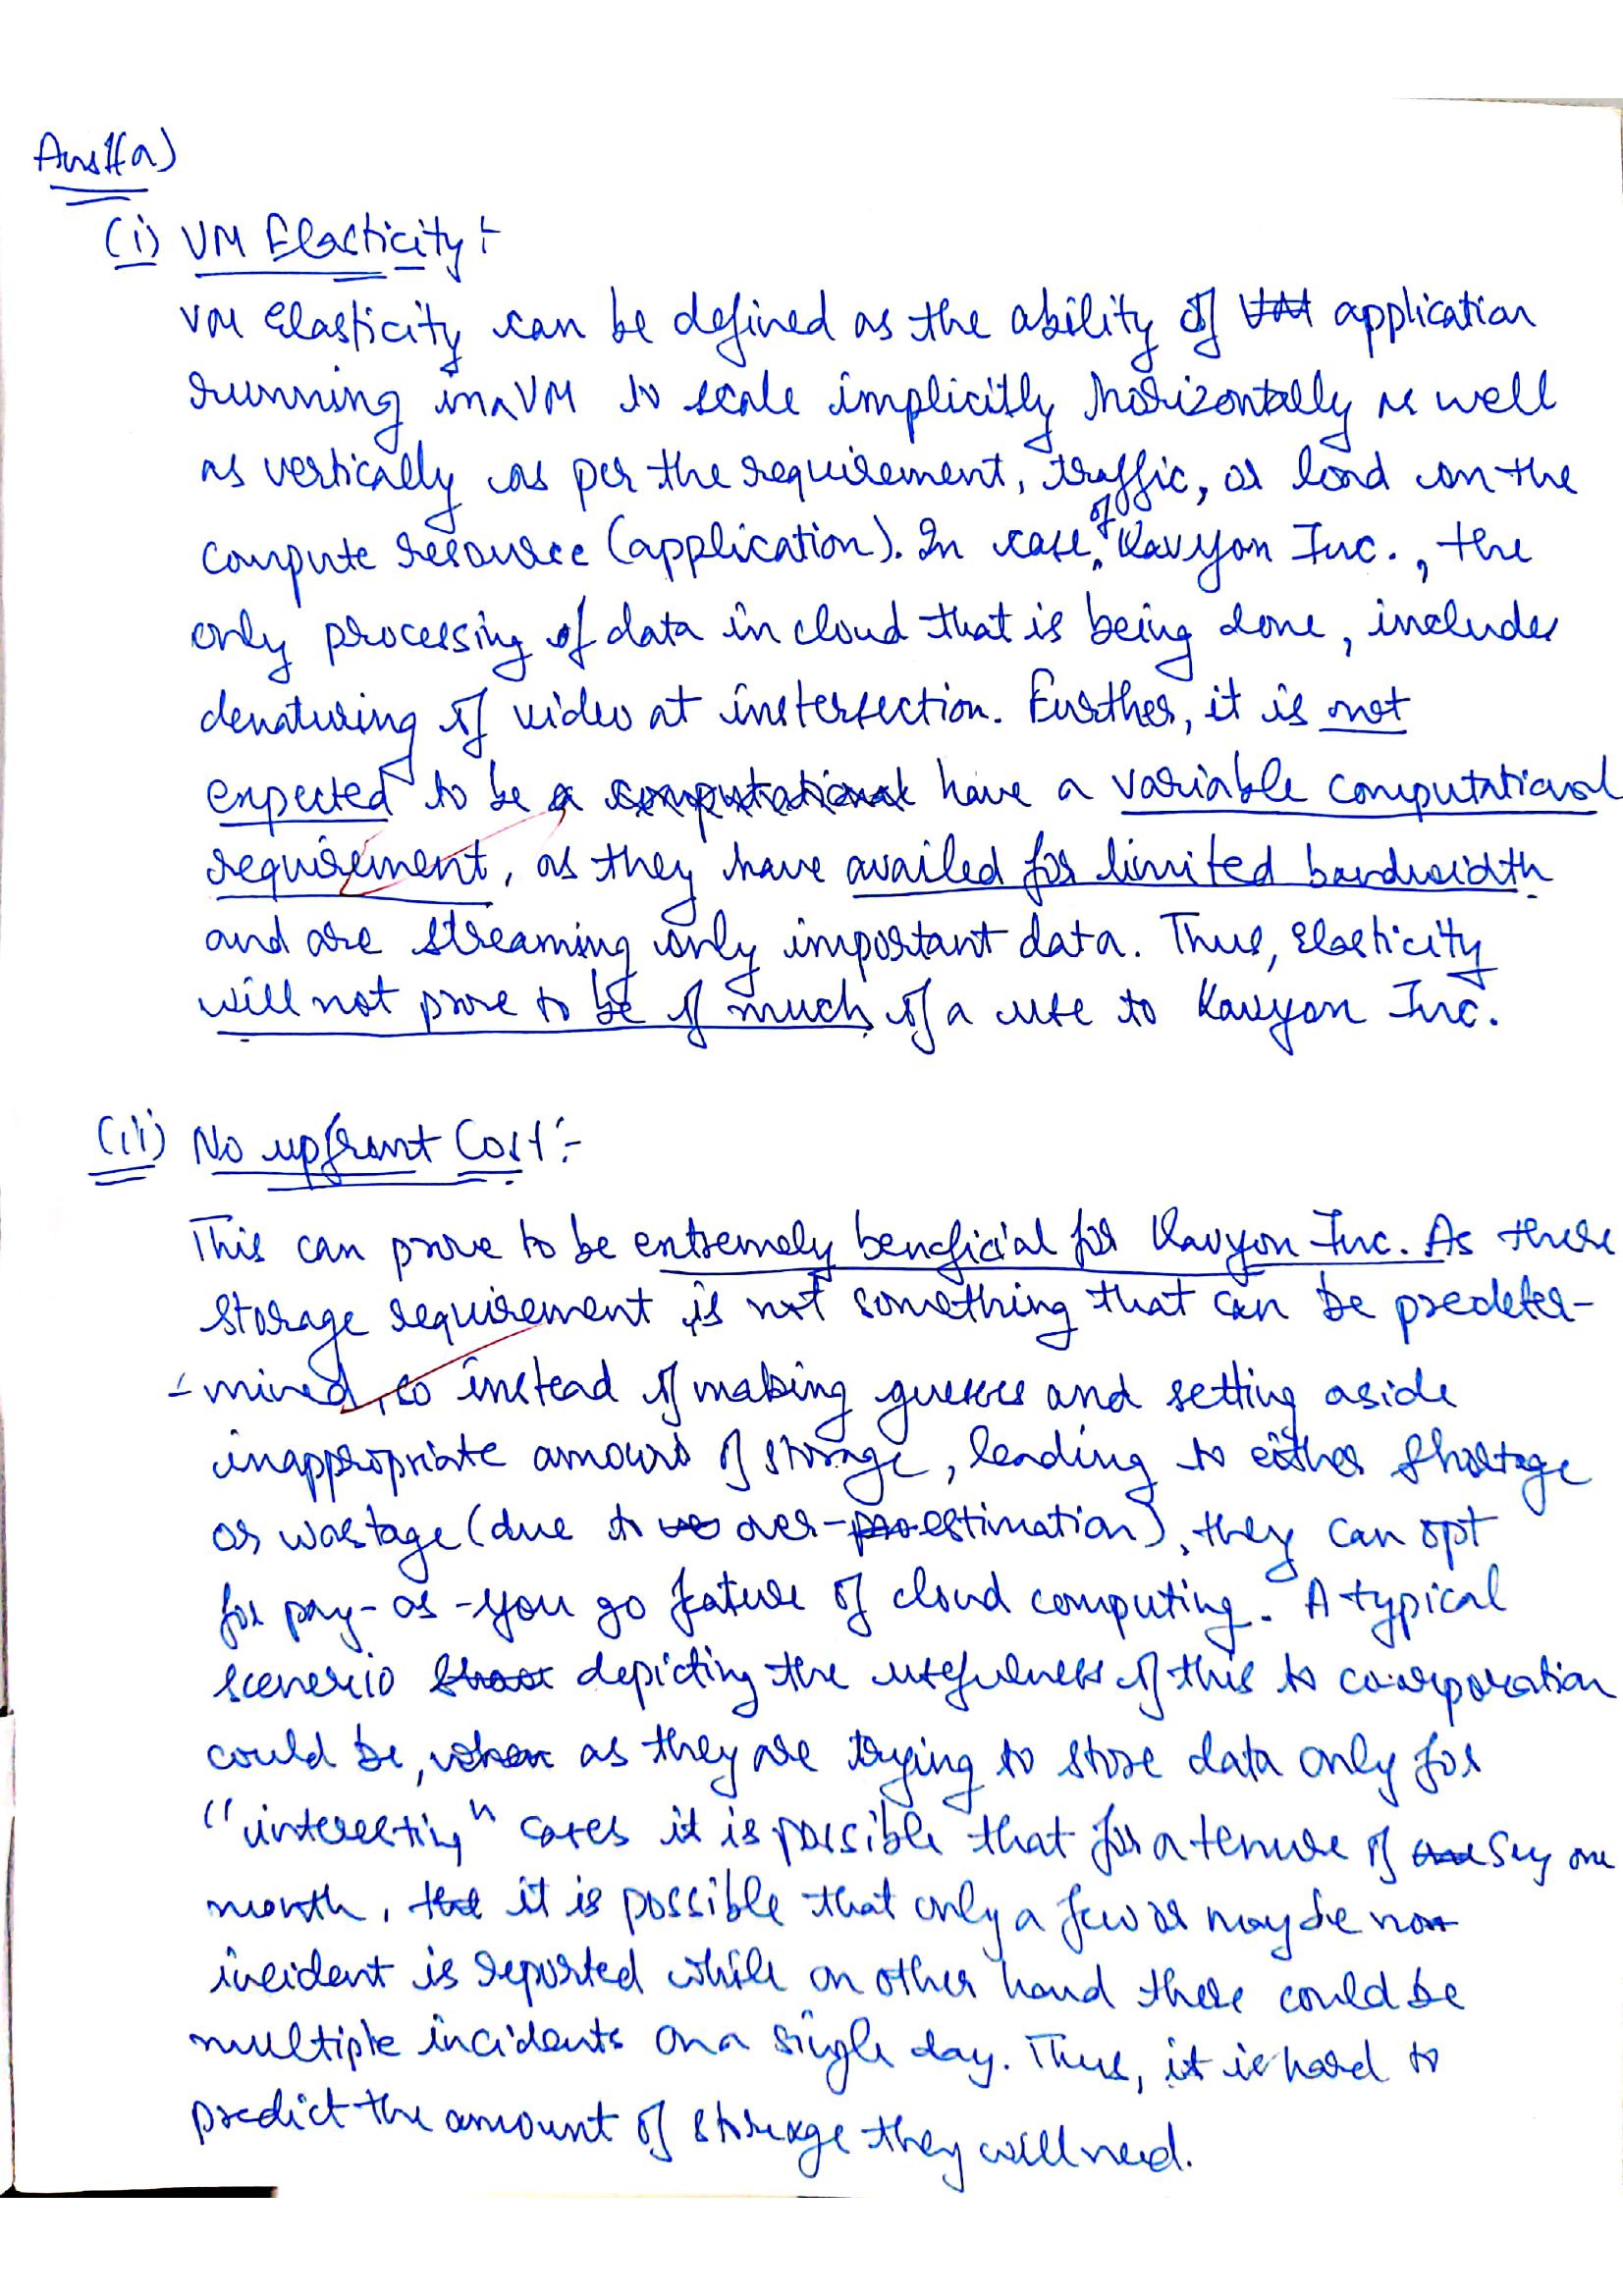 Ans1(a)
(i) VM Elasticity:-
VM Elasticity can be defined as the ability of application
running in a VM to scale implicitly horizontally as well
as vertically as per the requirement, traffic, or load on the
compute resource (application). In case of Kavyon Inc., the
only processing of data in cloud that is being done, includes
denaturing of video at instersection. Further, it is not
expected to be have a variable computational
requirement, as they have availed for limited bandwidth
and are streaming only important data. Thus, Elasticity
will not prove to be of much of a use to Kavyon Inc.
(ii) No upfront Cost:-
This can prove to be extremely beneficial for Kavyon Inc. As there
storage requirement is not something that can be predeter-
-mined, so instead of making guesses and setting aside
inappropriate amount of storage, leading to either shortage
or wastage (due to over-estimation), they can opt
for pay-as-you go feature of cloud computing. A typical
scenerio depicting the usefulness of this to coorporation
could be, as they are trying to store data only for
"interesting" cases it is possible that for a tenure of say one
month, it is possible that only a few or maybe no
incident is reported while on other hand there could be
multiple incidents on a single day. Thus, it is hard to
predict the amount of storage they will need.